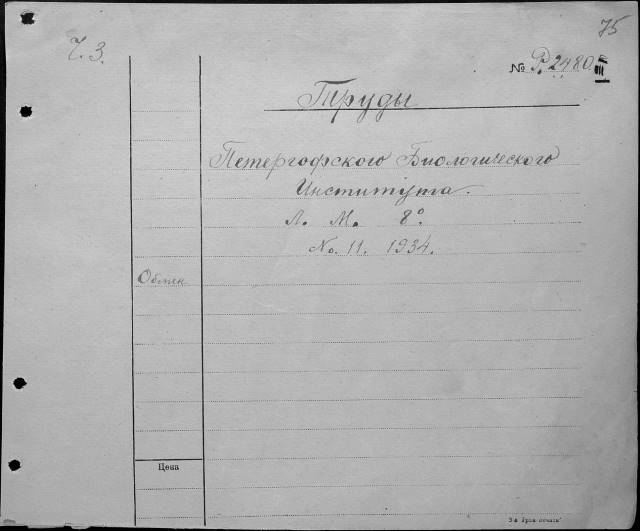 75
Ч. З.
№ Р. 2480 III
Труды
Петергофского Биологического
Института.
Л. М. 8°
No. 11. 1934.
Обмен
Цена